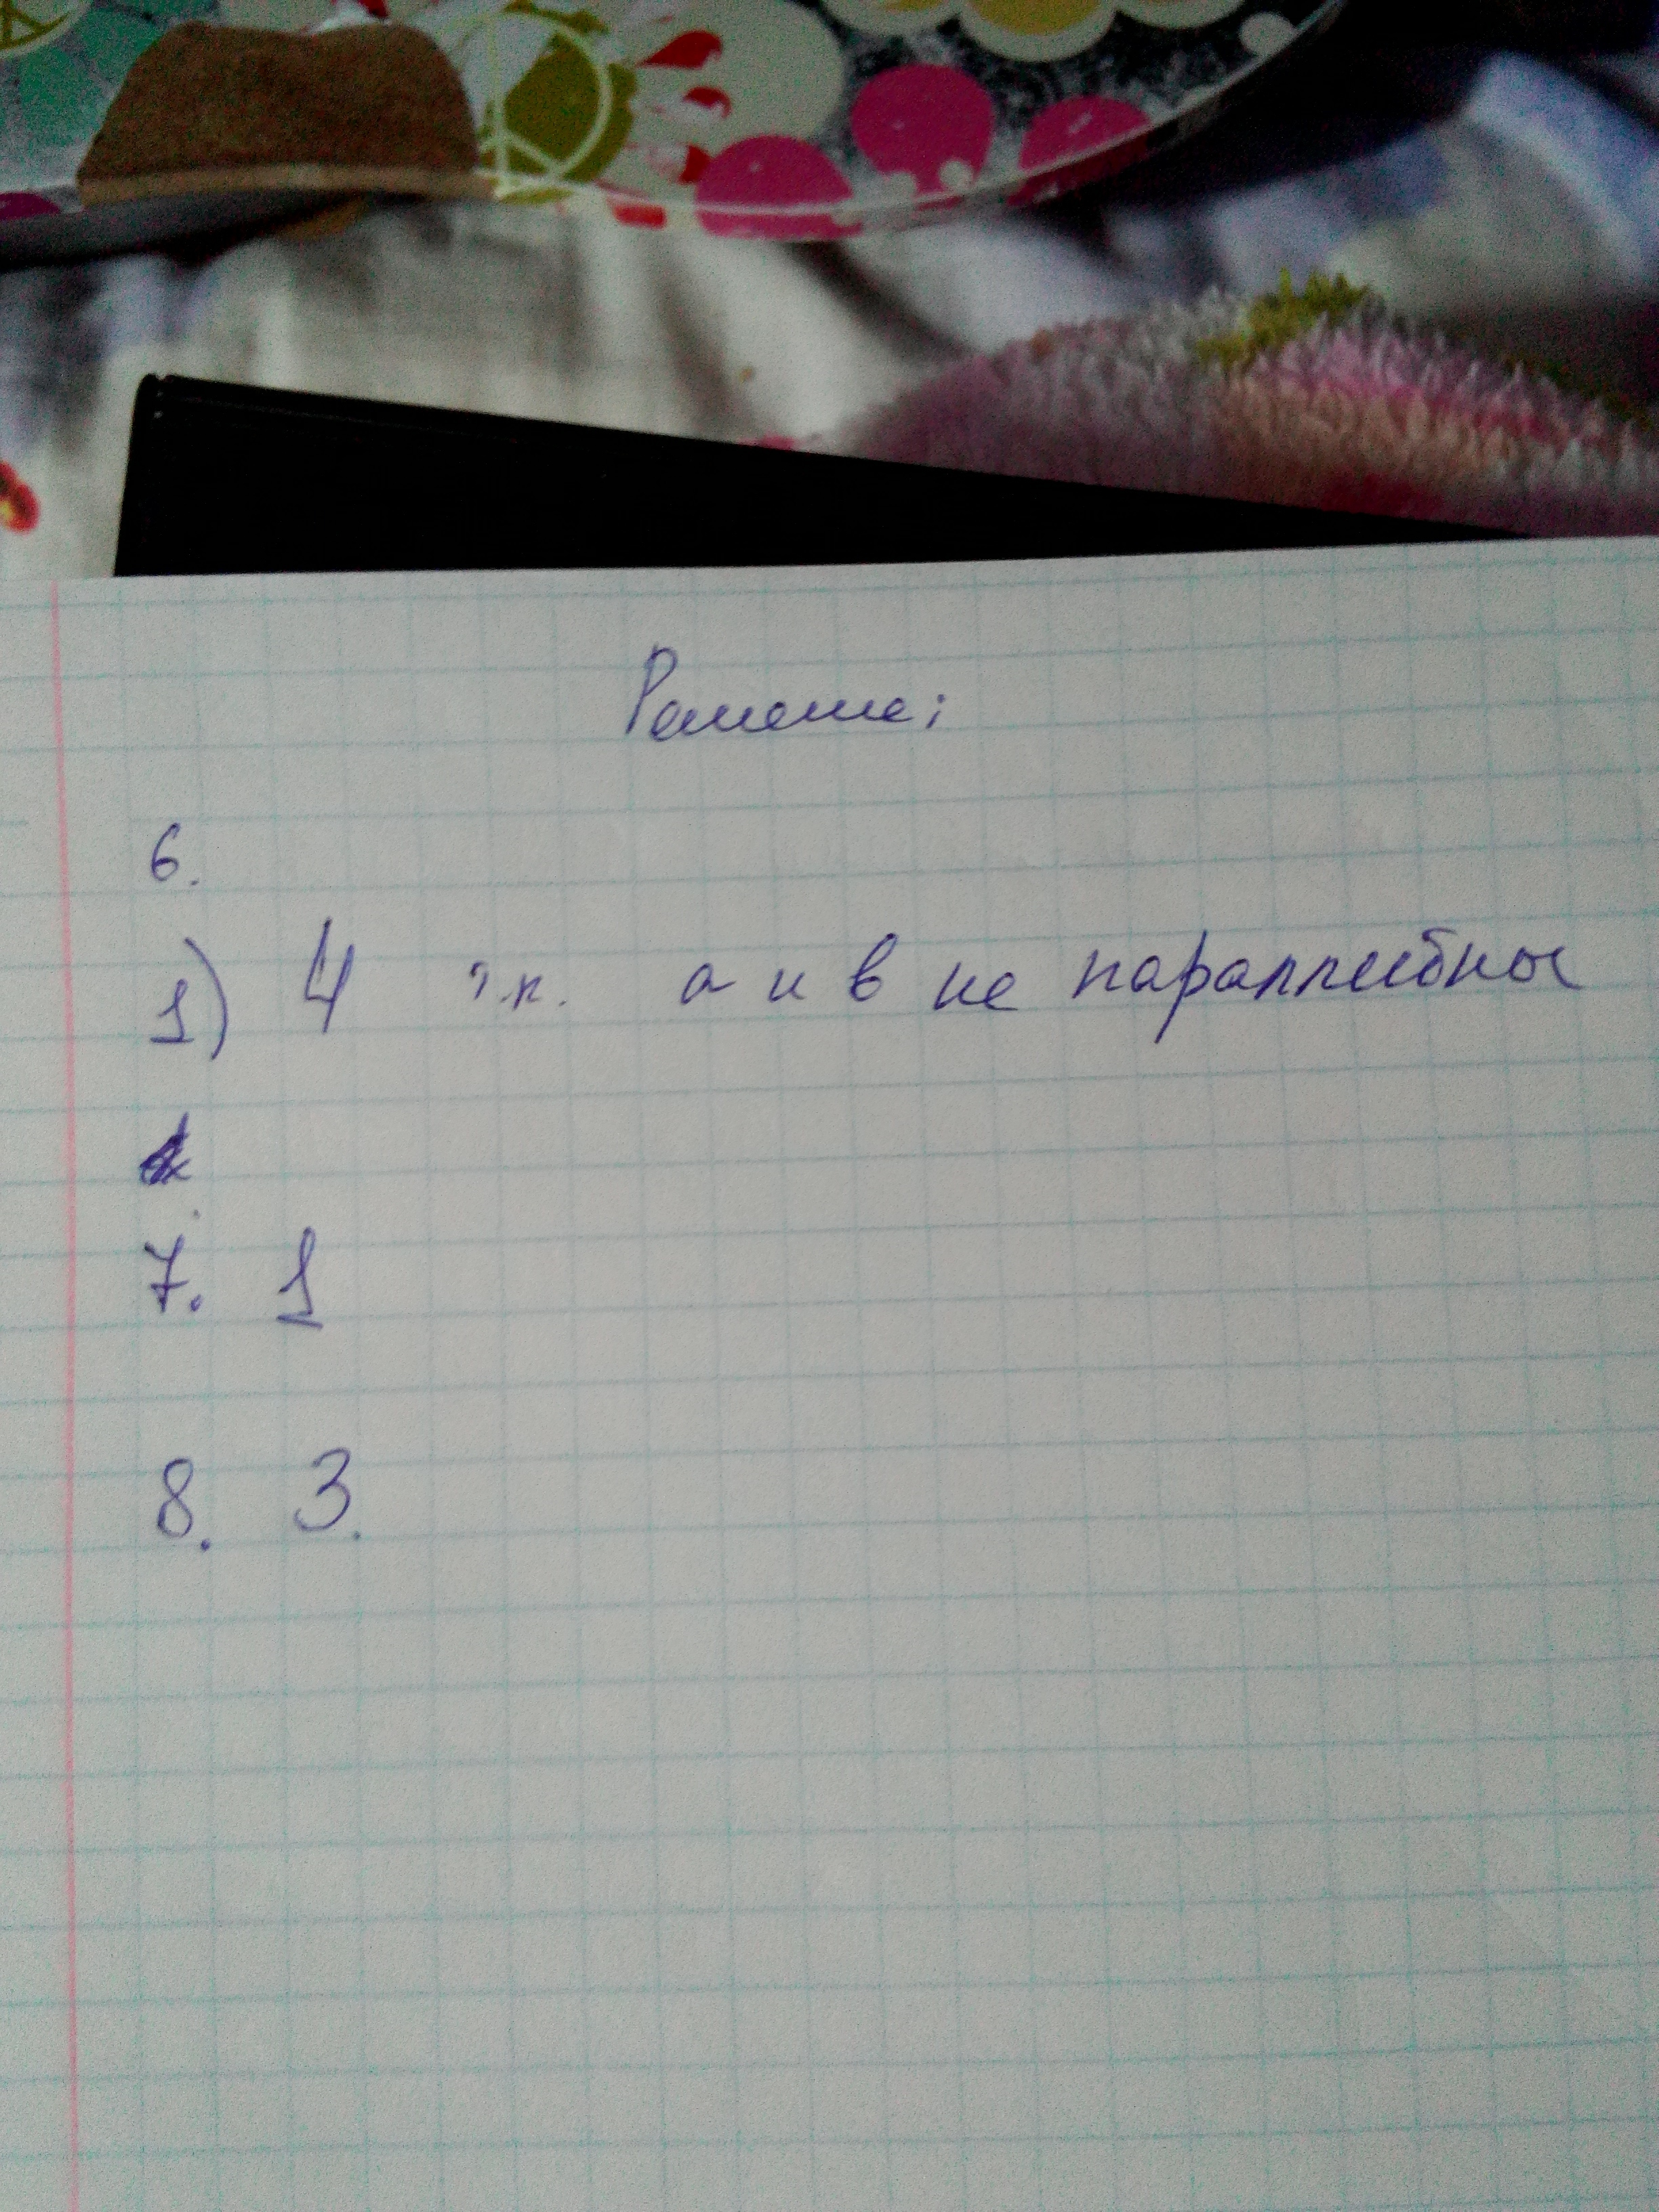 Решение:
6.
1) 4 т.к. а и в не параллельны
7. 1
8. 3.